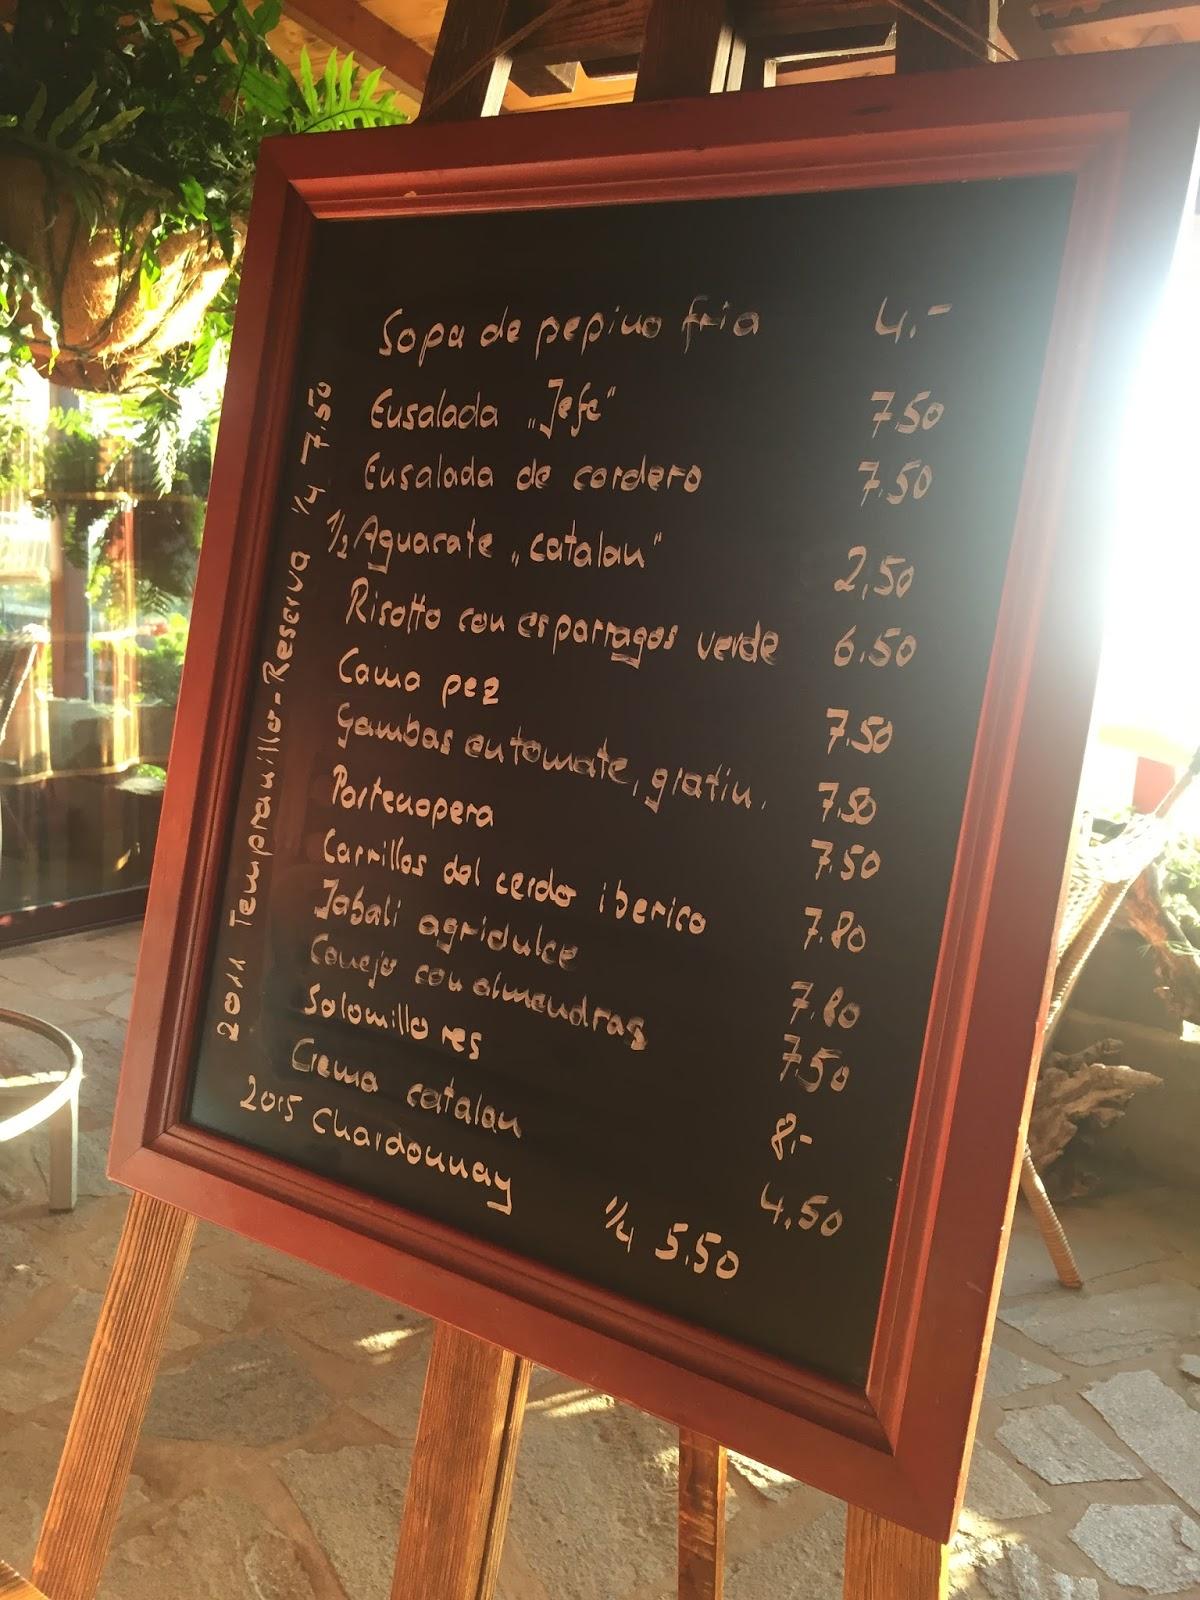 Sopa de pepino fria 4.-
Ensalada „Jefe" 7.50
Ensalada de cordero 7.50
1/2 Aguacate „catalan" 2,50
Risotto con esparragos verde 6.50
Cama pez 7.50
Gambas en tomate, gratin. 7.50
Portenopera 7.50
Carrillos del cerdo iberico 7.80
Jabali agridulce 7.80
Conejo con almendras 7.50
Solomillo res 8,-
Crema catalan 4.50
2015 Chardonnay 1/4 5.50
2011 Tempranillo-Reserva 1/4 7.50